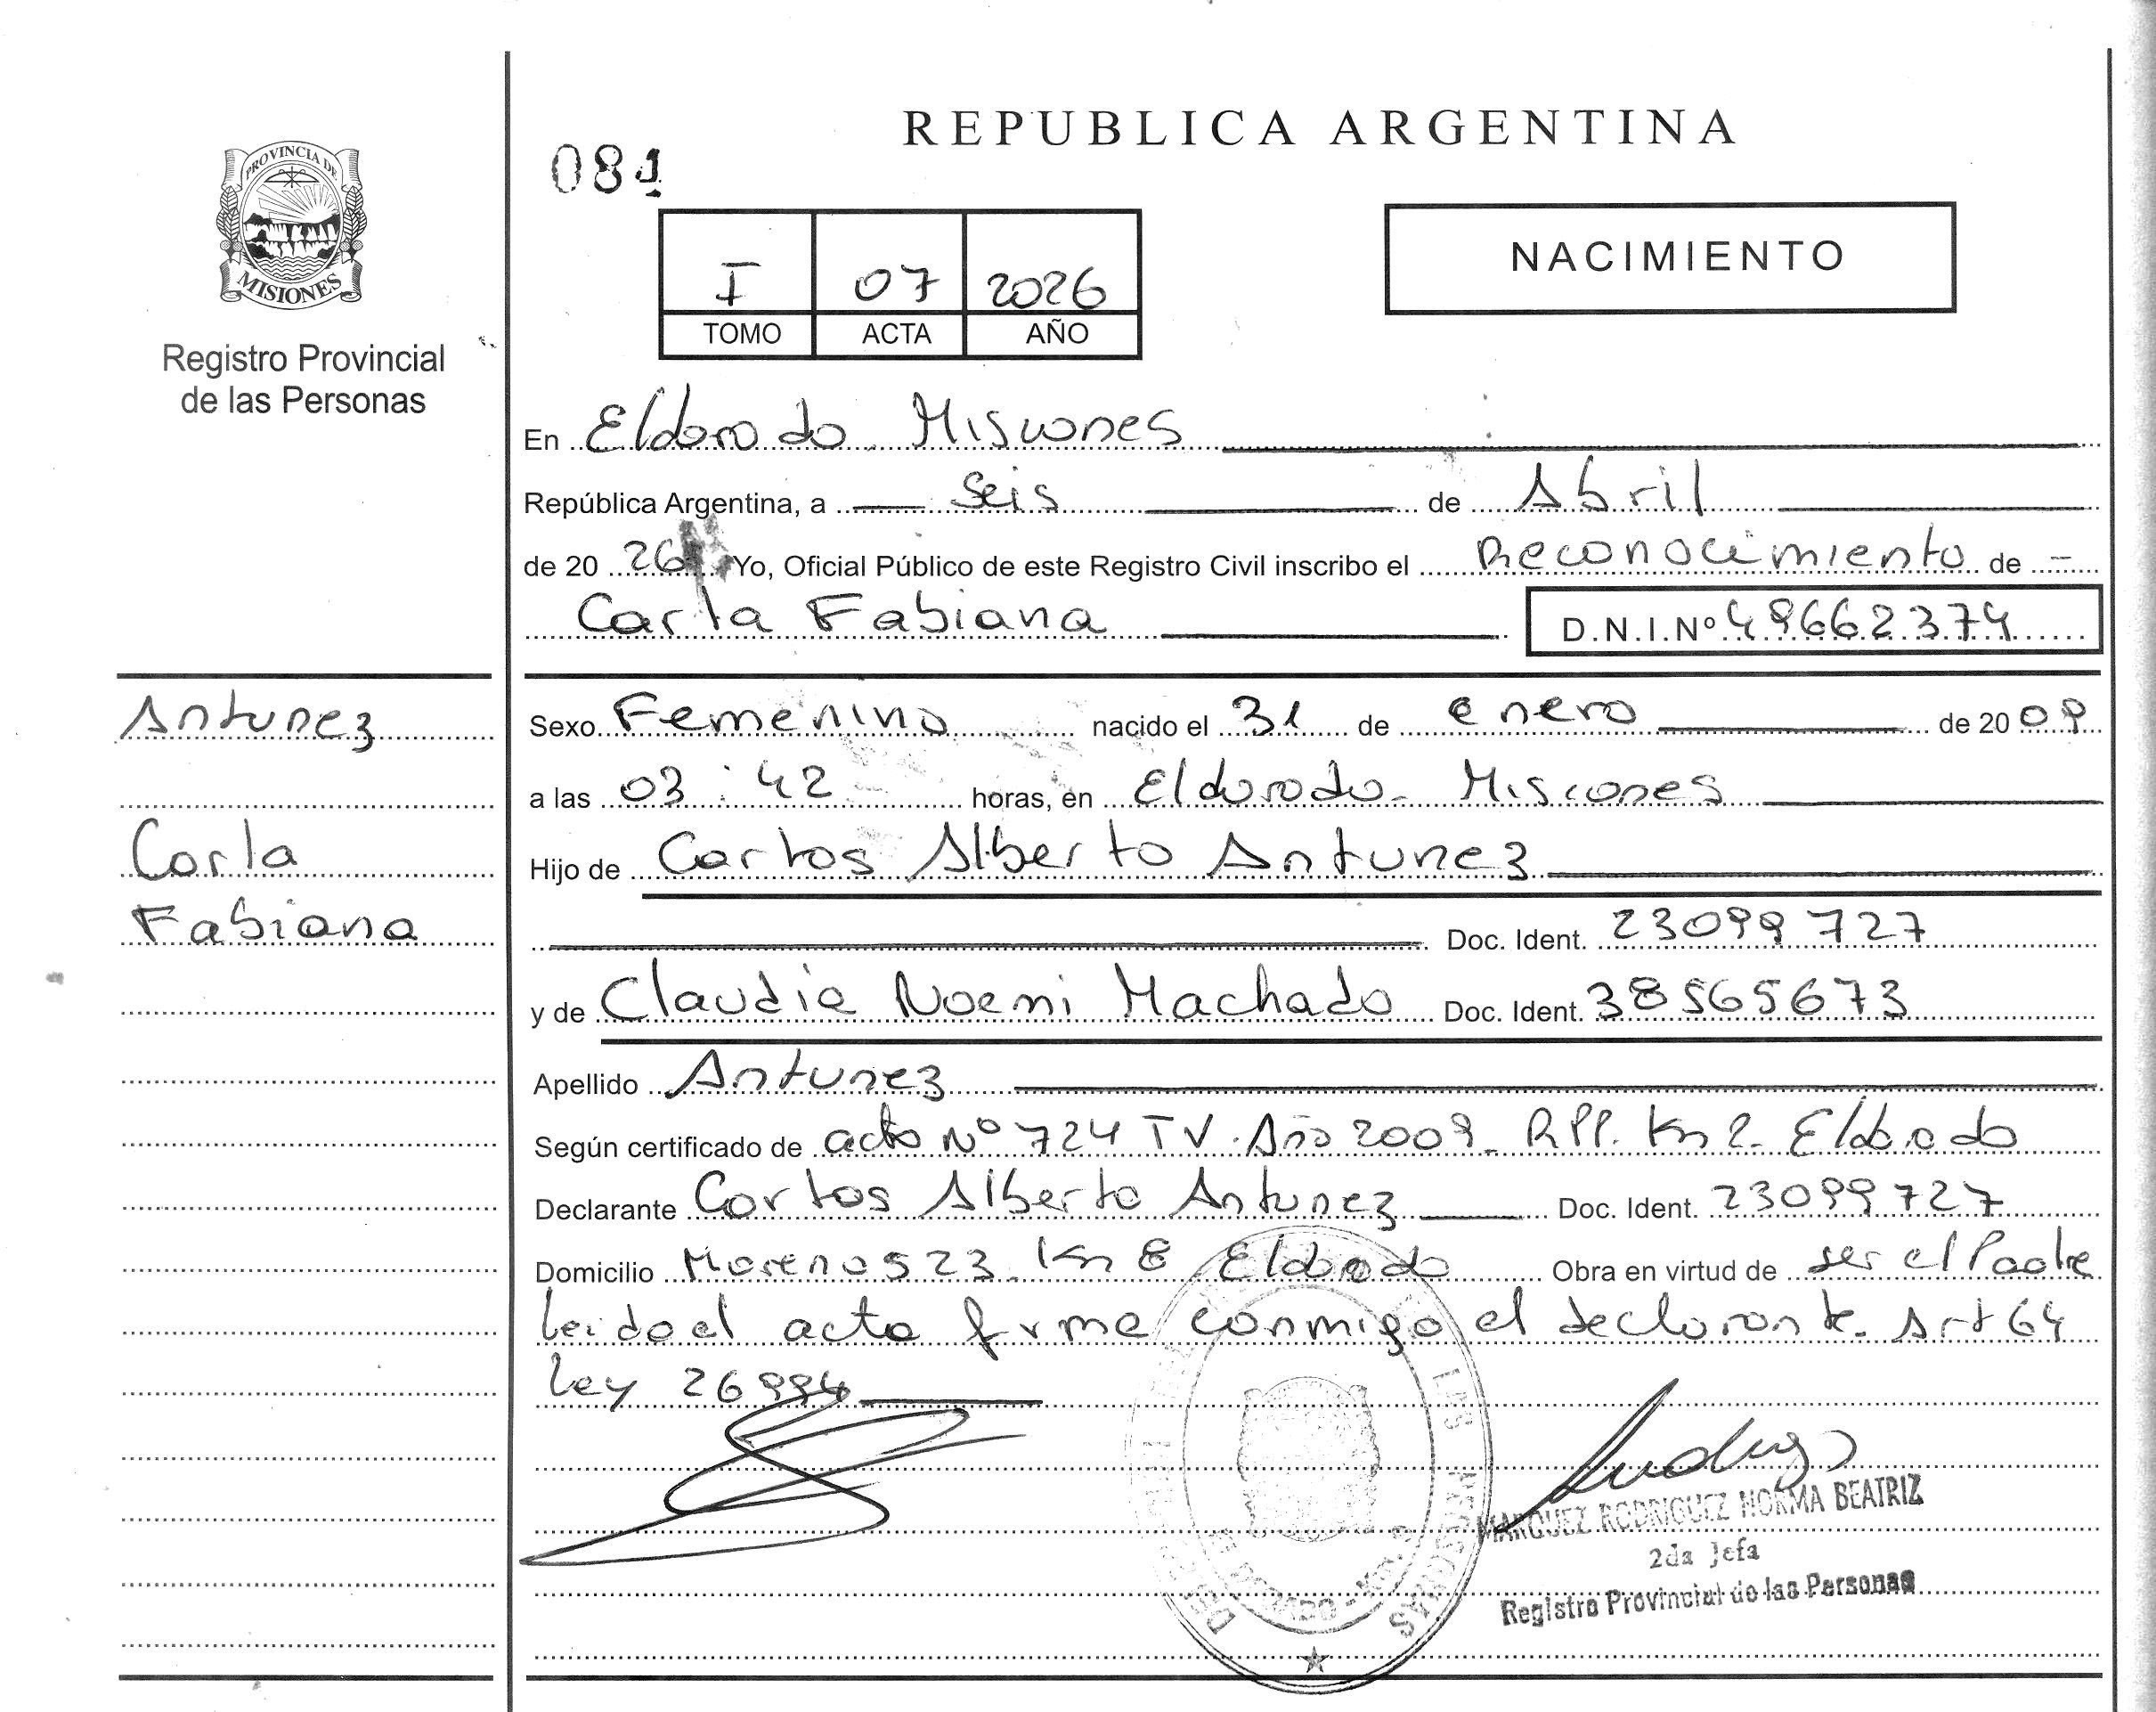 REPUBLICA ARGENTINA
081
PROVINCIA DE
MISIONES
Registro Provincial
de las Personas
NACIMIENTO
I 07 2026
TOMO ACTA AÑO
En Eldorado Misiones
República Argentina, a seis de Abril
de 20 26 Yo, Oficial Público de este Registro Civil inscribo el Reconocimiento de
Carla Fabiana D.N.I.Nº 49662374
Antunez
Carla
Fabiana
Sexo Femenino nacido el 31 de enero de 20 09
a las 03:42 horas, en Eldorado - Misiones
Hijo de Carlos Alberto Antunez
Doc. Ident. 23099727
y de Claudia Noemi Machado Doc. Ident. 38565673
Apellido Antunez
Según certificado de acta Nº 724 T V. Año 2009 - RPP. Km 2. Eldorado
Declarante Carlos Alberto Antunez Doc. Ident. 23099727
Domicilio Moreno 523. Km 8 Eldorado Obra en virtud de ser el Padre
leido el acta firma conmigo el declarante. Art 64
Ley 26994
MARQUEZ RODRIGUEZ NORMA BEATRIZ
2da Jefa
Registro Provincial de las Personas
LAS PERSONAS